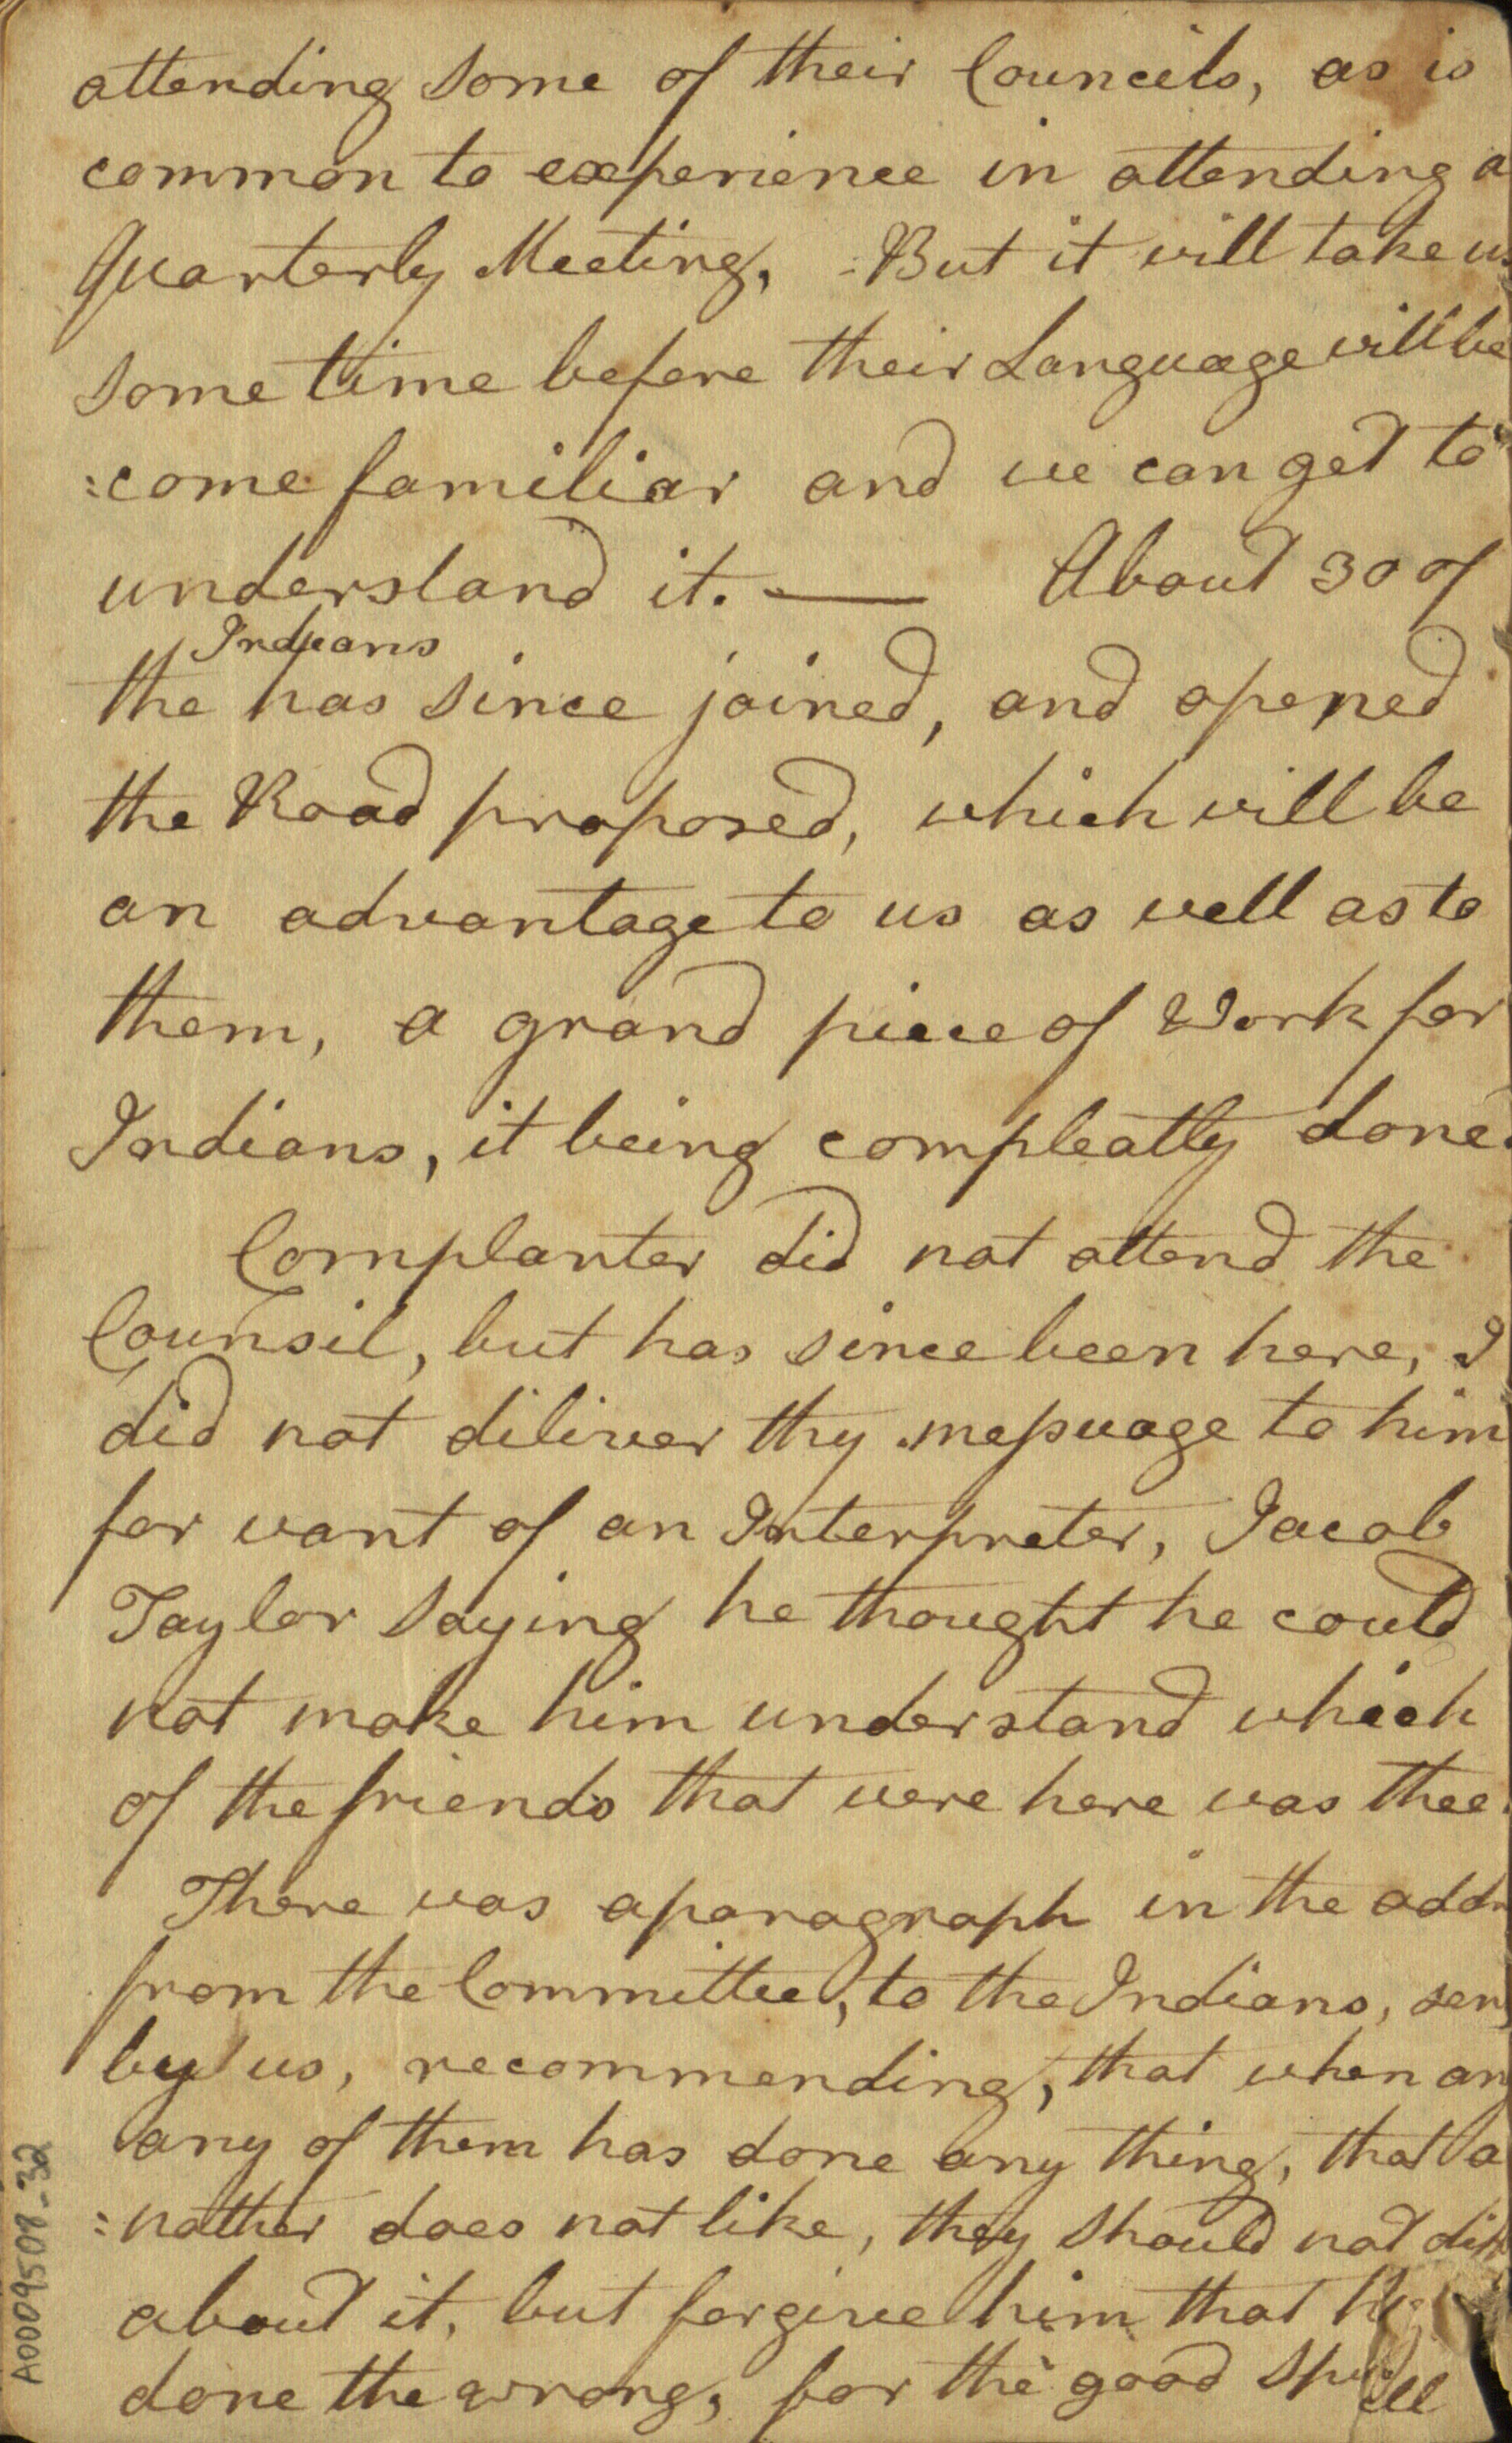 attending some of their Councils, as is
common to experience in attending a
Quarterly Meeting, But it will take us
some time before their Language will be
:come familiar and we can get to
understand it. — About 30 of
Indians
the has since joined, and opened
the Road proposed, which will be
an advantage to us as well as to
them, a grand piece of Work for
Indians, it being compleatly done.
Cornplanter did not attend the
Counsil, but has since been here, I
did not diliver thy messuage to him
for want of an Interpreter, Jacob
Taylor saying he thought he could
not make him understand which
of the friends that were here was thee.
There was a paragraph in the add
from the Committee, to the Indians, sen
by us, recommending, that when an
any of them has done any thing, that a
:nother does not like, they should not diff
about it, but forgive him that
done the wrong, for the good
A0009508-32